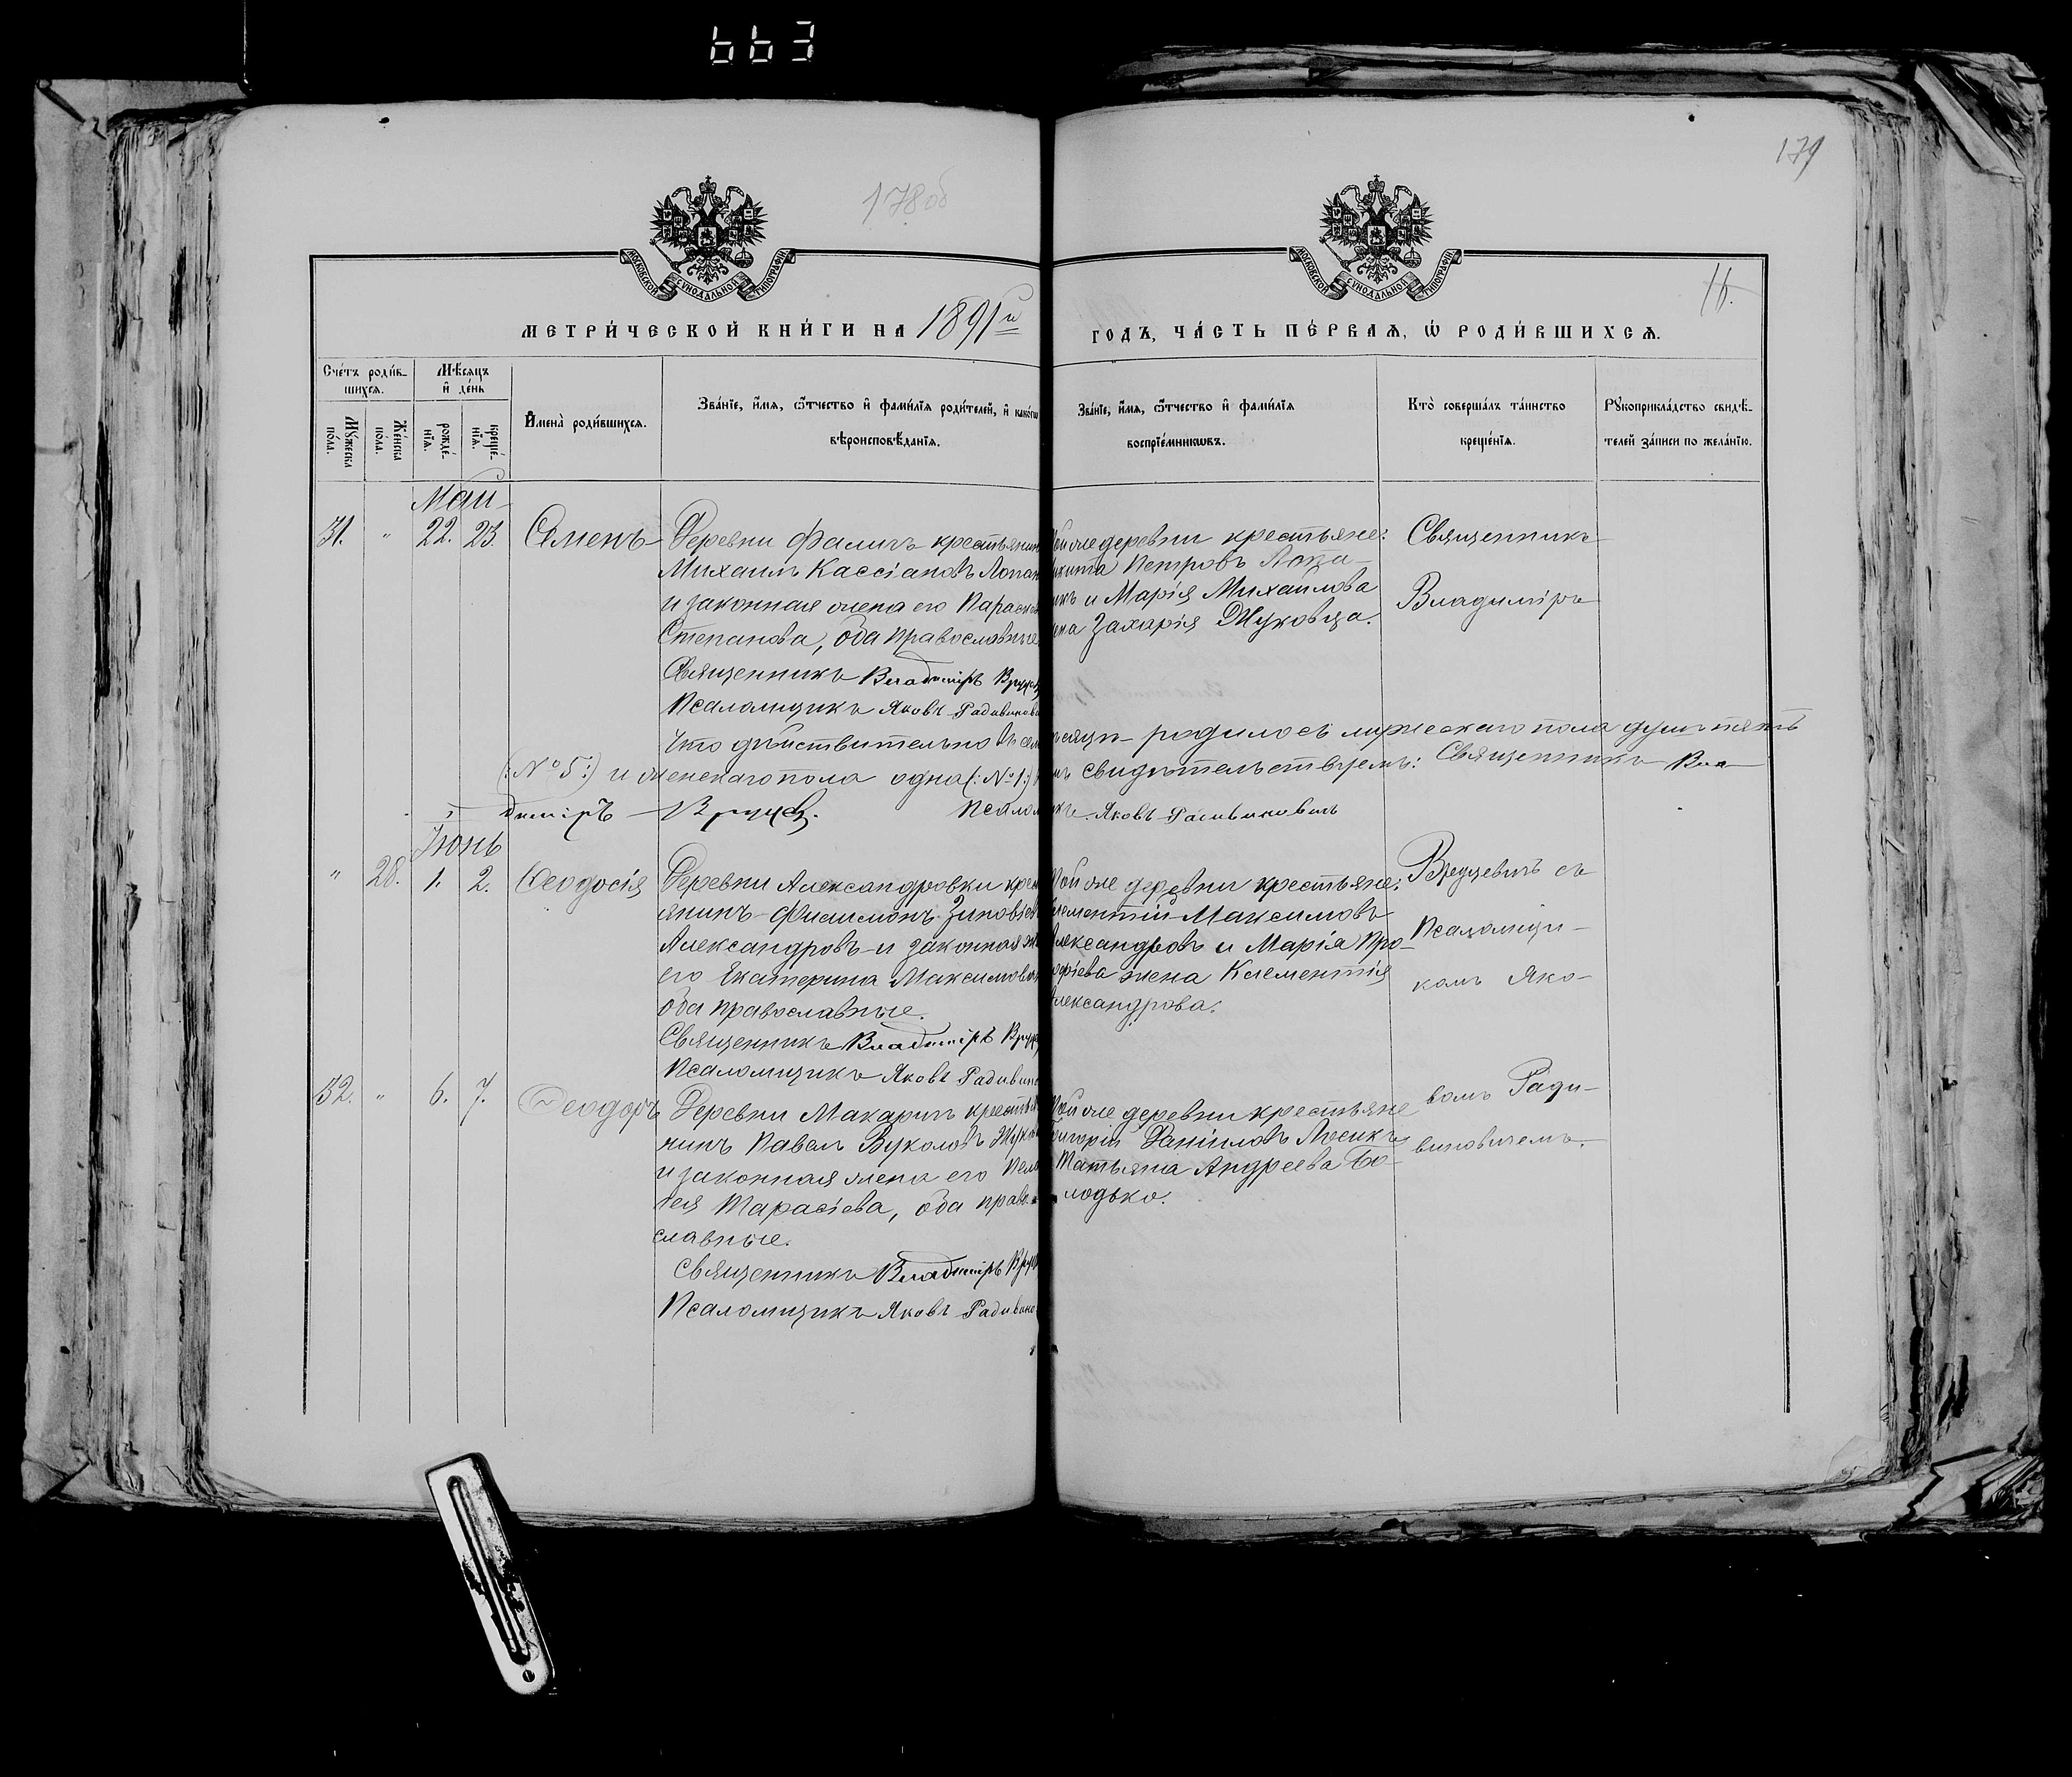 663
178 об
179
16.
МОСКОВСКОЙ СУНОДАЛЬНОЙ ТИПОГРАФІИ
МОСКОВСКОЙ СУНОДАЛЬНОЙ ТИПОГРАФІИ
МЕТРИ́ЧЕСКОЙ КНИ́ГИ НА 1891й
ГОДЪ, ЧА́СТЬ ПЕ́РВАѦ, Ѡ҆ РОДИ́ВШИХСѦ.
Сче́тъ роди́в-
шихсѧ.
Мѣ́сѧцъ
и҆ де́нь
Мꙋ́жеска
по́ла.
Же́нска
по́ла.
рожде́-
нїѧ.
креще́-
нїѧ.
И҆мена̀ роди́вшихсѧ.
Зва́нїе, и҆́мѧ, ѻ҆́тчество и҆ фами́лїѧ роди́телей, и҆ како́гѡ
вѣроисповѣ́данїѧ.
Зва́нїе, и҆́мѧ, ѻ҆́тчество и҆ фами́лїѧ
воспрїе́мникѡвъ.
Кто̀ соверша́лъ та́инство
креще́нїѧ.
Рꙋкоприкла́дство свидѣ́-
телей за́писи по жела́нїю.
Май
31. " 22. 23. Семенъ
Деревни Фаличъ крестьянин
Михаилъ Кассіановъ Лопат
и законная жена его Параскев
Степанова, оба православные.
Священникъ Владиміръ Вруцев
Псаломщикъ Яковъ Радивинови
той же деревни крестьяне:
Никита Петровъ
и Марія Михайлова
жена Захарія Жуковца.
Священникъ
Владиміръ
Что дѣйствительно въ сем мѣсяцѣ родилось мужескаго пола душъ пять
(:№ 5:) и женскаго пола одна (:№ 1:) свидѣтельствуемъ: Священникъ Вла-
диміръ Вруцев. Псаломщикъ Яковъ Радивиновичъ
Іюнь
" 28. 1. 2. Ѳеодосія
Деревни Александровки крест
янинъ Филимонъ Зиновіевъ
Александровъ и законная же
его Екатерина Максимова
оба православные.
Священникъ Владиміръ Вруц
Псаломщикъ Яковъ Радивино
Той же деревни крестьяне:
Климентій Максимовъ
Александровъ и Марія Про-
офіева жена Климентія
Александрова.
Вруцевичъ съ
Псаломщи-
комъ Яко-
32. " 6. 7. Ѳеодоръ
Деревни Макаричъ крестья
нинъ Павелъ Вуколовъ Жуков
и законная жена его Пела
гея Тарасіева, оба право-
славные.
Священникъ Владиміръ Вруц
Псаломщикъ Яковъ Радивино
Той же деревни крестьяне
Григорій Даніиловъ Лосикъ
Татьяна Андреева Во-
лодько.
вомъ Ради-
виновичемъ.